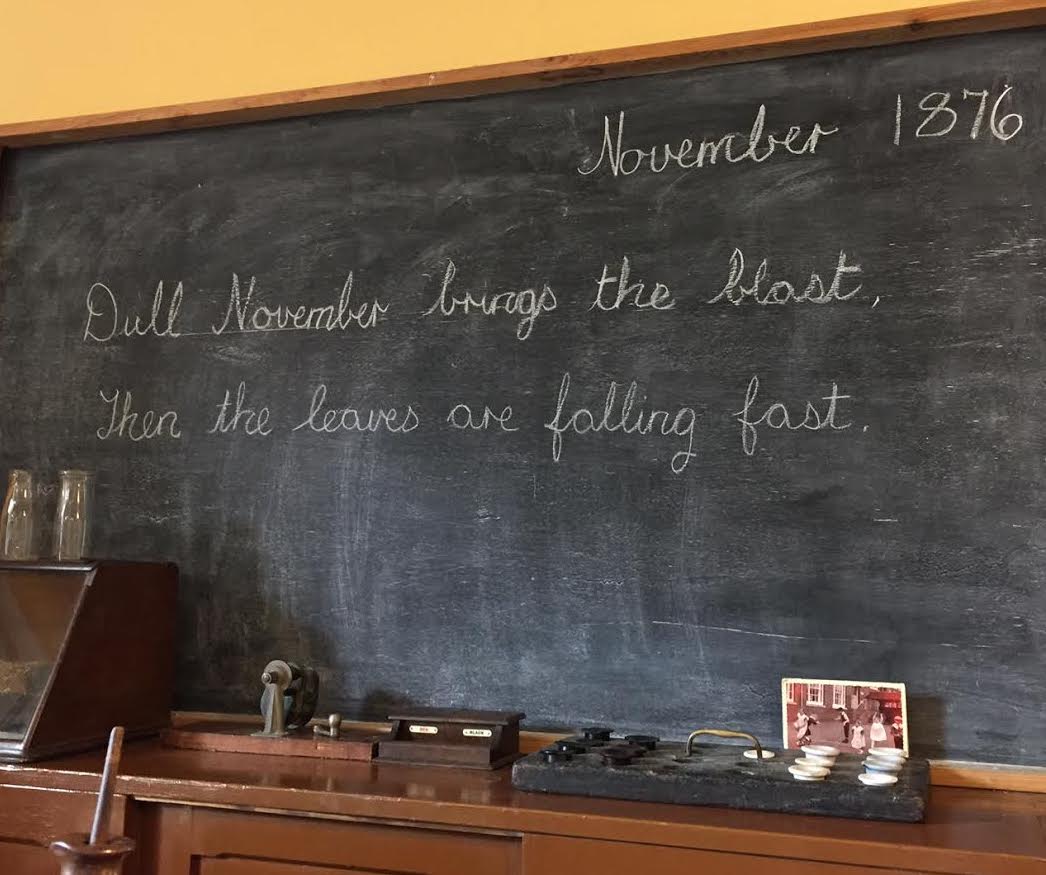 November 1876
Dull November brings the blast,
Then the leaves are falling fast.
RED BLACK